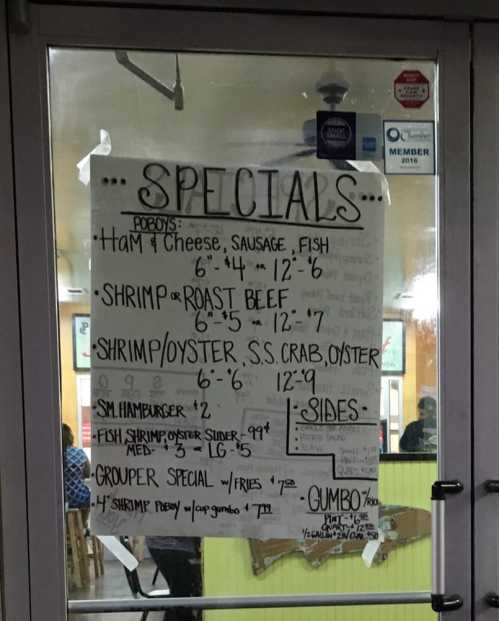 ... SPECIALS ...
POBOYS:
• Ham & Cheese, SAUSAGE, FISH
6"-$4 12"-$6
• SHRIMP OR ROAST BEEF
6"-$5 12"-$7
• SHRIMP/OYSTER, S.S. CRAB, OYSTER
6"-$6 12"-$9
• SM. HAMBURGER $2
• FISH, SHRIMP, OYSTER SLIDER - 99¢
MED - $3 LG - $5
• GROUPER SPECIAL w/ FRIES $7
• 4" SHRIMP POBOY w/ cup gumbo $7
• SIDES •
• GUMBO w/
PINT - $6
QUART - $12
MEMBER
2016